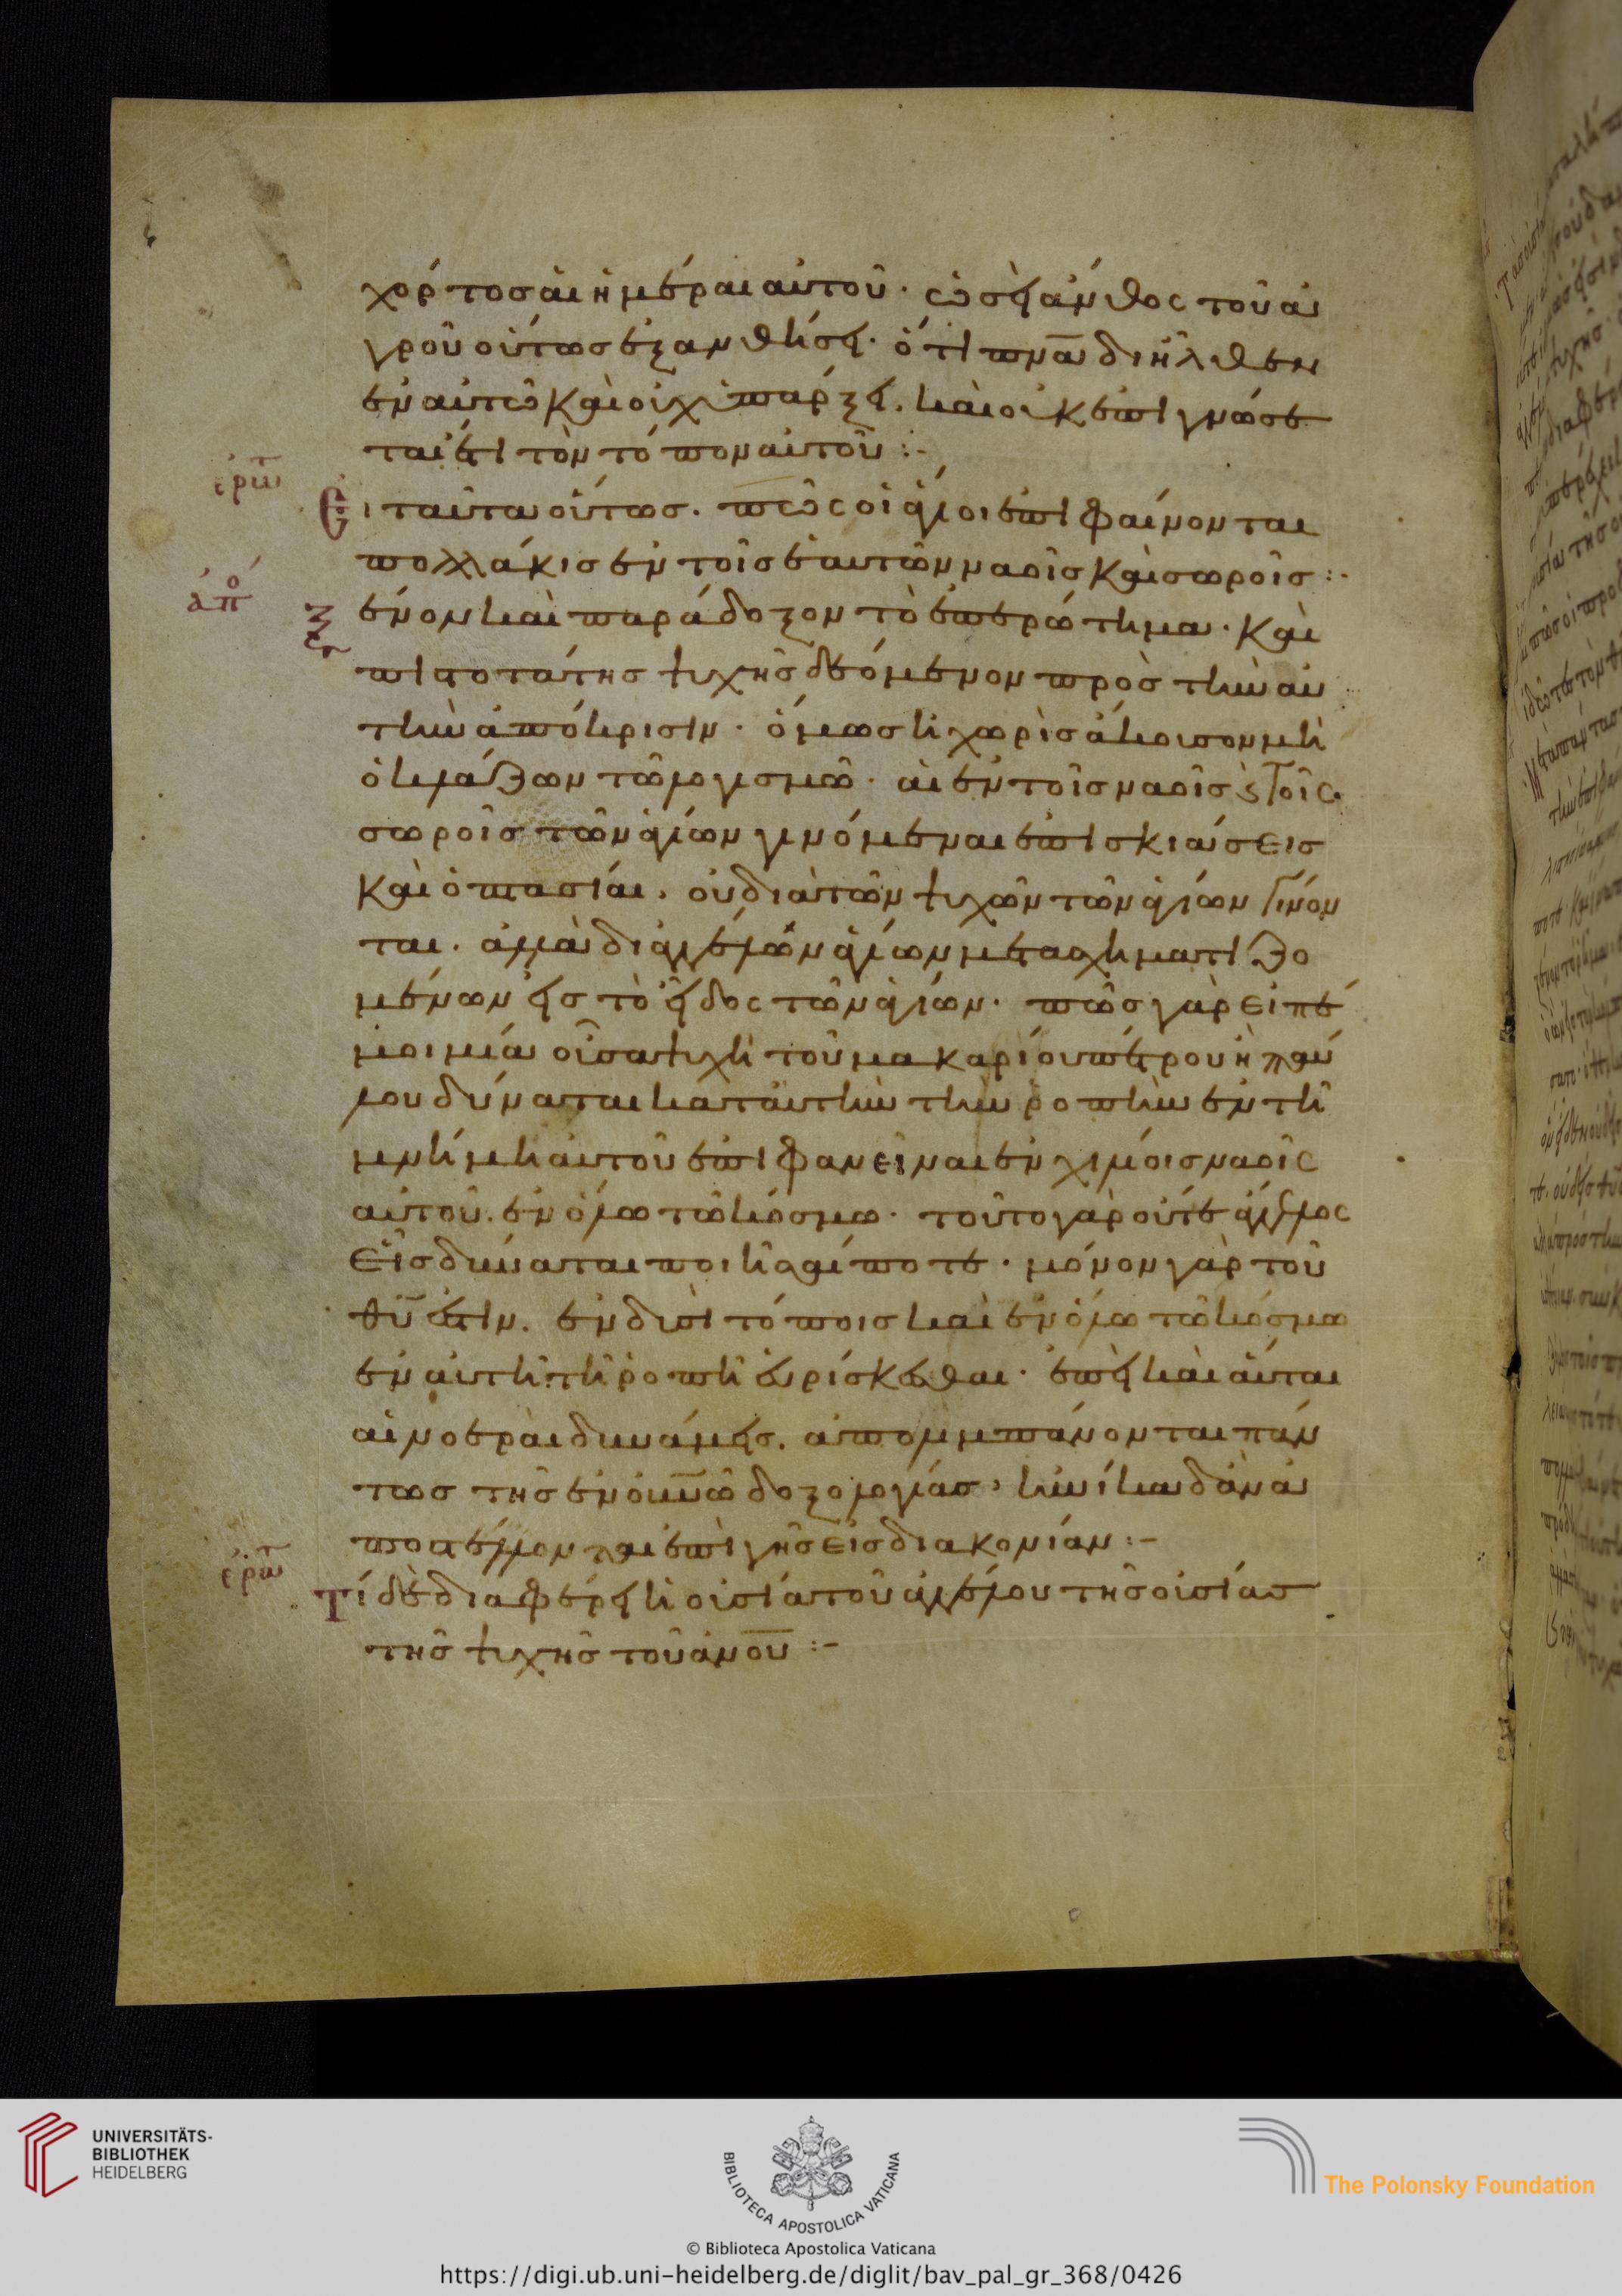 χόρτος αἱ ἡμέραι αὐτοῦ· ὡσεὶ ἄνθος τοῦ ἀ
γροῦ οὕτως ἐξανθήσει· ὅτι πνᾶ διῆλθεν
ἐν αὐτῶ καὶ οὐχ ὑπάρξει. καὶ οὐκ ἐπιγνώσε
ται ἔτι τὸν τόπον αὐτοῦ :-
ἐρωτ
Εἰ ταῦτα οὕτως. πῶς οἱ ἅγιοι ἐπιφαίνονται
πολλάκις ἐν τοῖς ἑαυτῶν ναοῖς καὶ σωροῖς :-
ἀπο
Ξένον καὶ παράδοξον τὸ ἐπερώτημα. καὶ
πιστοτάτης ψυχῆς δεόμενον πρὸς τὴν αὐ
τὴν ἀπόκρισιν. ὅμως κἂν χωρὶς ἄκουσον μὴ
ὀκλάζων τῶ λογισμῶ. αἱ ἐν τοῖς ναοῖς ϛ τοῖς
σωροῖς τῶν ἁγίων γινόμεναι ἐπισκιάσεις
καὶ ὀπτασίαι. οὐ διὰ τῶν ψυχῶν τῶν ἁγίων γίνον
ται. ἀλλὰ δι' ἀγγέλων ἁγίων μετασχηματιζο
μένων εἰς τὸ εἶδος τῶν ἁγίων. πῶς γὰρ εἰπέ
μοι μία οὖσα ψυχὴ τοῦ μακαρίου πέτρου ἢ παύ
λου δύναται κατ' αὐτὴν τὴν ῥοπὴν ἐν τῆ
μνήμη αὐτοῦ ἐπιφανεῖναι ἐν χιλίοις ναοῖς
αὐτοῦ. ἐν ὅλω τῶ κόσμω. τοῦτο γὰρ οὔτε ἄγγελος
εἷς δύναται ποιῆσαί ποτε. μόνου γὰρ τοῦ
θῦ ἐστιν. ἐν δυσὶ τόποις καὶ ἐν ὅλω τῶ κόσμω
ἐν αὐτῆ τῆ ῥοπῆ εὑρίσκεσθαι. ἐπεὶ καὶ αὗται
αἱ νοεραὶ δυνάμεις. ἀπολιμπάνονται πάν
τως τῆς ἐν οὐνῶ δοξολογίας. ἡνίκα δ' ἂν ἀ
ποστέλλονται ἐπὶ γῆς εἰς διακονίαν :-
ἐρωτ
Τί δὲ διαφέρει ἡ οὐσία τοῦ ἀγγέλου τῆς οὐσίας
τῆς ψυχῆς τοῦ ἀνου :-
UNIVERSITÄTS-
BIBLIOTHEK
HEIDELBERG
BIBLIOTECA APOSTOLICA VATICANA
The Polonsky Foundation
© Biblioteca Apostolica Vaticana
https://digi.ub.uni-heidelberg.de/diglit/bav_pal_gr_368/0426